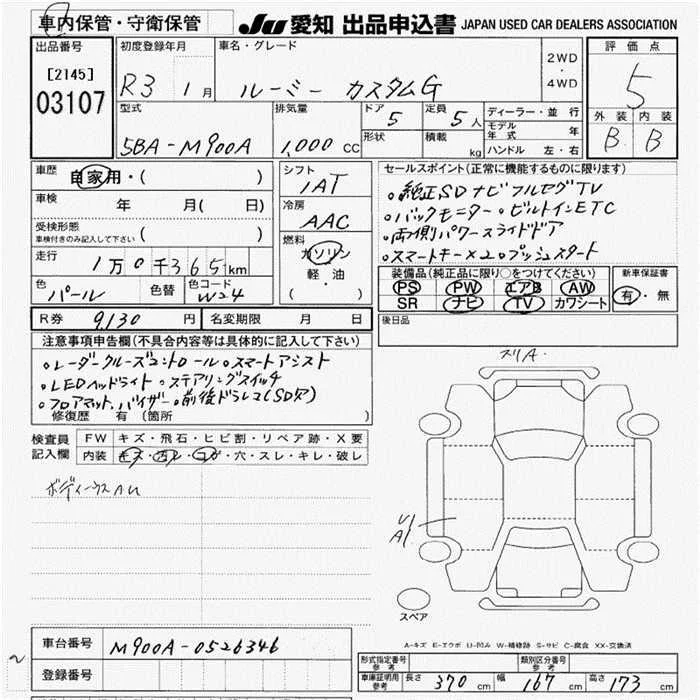 車内保管・守衛保管
JU 愛知 出品申込書 JAPAN USED CAR DEALERS ASSOCIATION
出品番号
[2145]
03107
初度登録年月
R3 1月
車名・グレード
ルーミー カスタムG
2WD
・
4WD
評価点
5
外装 内装
B B
型式
5BA-M900A
排気量
1,000 CC
ドア
5
定員
5人
形状
積載
kg
ディーラー・並行
モデル年式 年
ハンドル 左・右
車歴
自家用・( )
車検 年 月( 日)
受検形態
車検付きのみ記入して下さい ( )
走行
1万0千365km
色
パール
色替
色コード
W24
シフト
IAT
冷房
AAC
燃料
ガソリン
軽・油
( )
セールスポイント(正常に機能するものに限ります)
・純正SDナビフルセグTV
・バックモニター・ビルトインETC
・両側パワースライドドア
・スマートキー×2・プッシュスタート
装備品(純正品に限り○をつけてください)
PS PW エアB AW
SR ナビ TV カワシート
新車保証書
有・無
R券 9,130 円
名変期限 月 日
後日品
注意事項申告欄(不具合内容等は具体的に記入して下さい)
・レーダークルーズコントロール・スマートアシスト
・LEDヘッドライト・ステアリングスイッチ
・フロアマット、バイザー・前後ドラレコ(SDタ)
修復歴 有 (箇所 )
検査員記入欄
FW キズ・飛石・ヒビ割・リペア跡・X要
内装 キズ・汚レ・コゲ・穴・スレ・キレ・破レ
スリA
U1
A1
スペア
A-キズ E-エクボ U-凹み W-補修跡 S-サビ C-腐食 XX-交換済
車台番号 M900A-0526346
登録番号
形式指定番号
参考
類別区分番号
参考
車庫証明用
参考
長さ 370 cm 幅 167 cm 高さ 173 cm